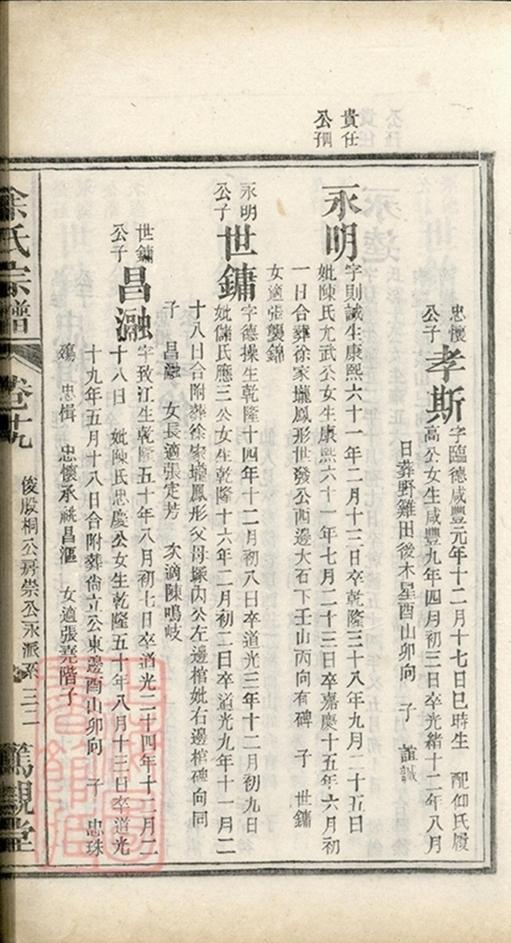 忠懷公子
孝斯
字臨德咸豐元年十二月十七日巳時生 配仰氏履
高公女生咸豐九年四月初三日卒光緒十二年八月
日葬野雞田後木星酉山卯向 子 誼誠
貴任公子
永明
字則誠生康熙六十一年二月十三日卒乾隆三十八年九月二十五日
妣陳氏尤武公女生康熙六十一年七月二十三日卒嘉慶十五年六月初
一日合葬徐家壠鳳形世發公西邊大石下壬山丙向有碑 子 世鏞
女適張襲錦
永明公子
世鏞
字德操生乾隆十四年十二月初八日卒道光三年十二月初九日
妣儲氏應三公女生乾隆十六年二月初二日卒道光九年十一月二
十八日合附葬徐家壠鳳形父母塚內公左邊棺妣右邊棺碑向同
子 昌瀜 女長適張定芳 次適陳鳴岐
世鏞公子
昌瀜
字致江生乾隆五十年八月初七日卒道光二十四年十一月二
十八日 妣陳氏思慶公女生乾隆五十年八月十三日卒道光
十九年五月十八日合附葬尚立公東邊酉山卯向 子 忠珠
殤 忠楫 忠懷承祧昌漚 女適張堯階子
俊股桐公房崇公永派系 三二
余氏宗譜
卷十九
篤親堂